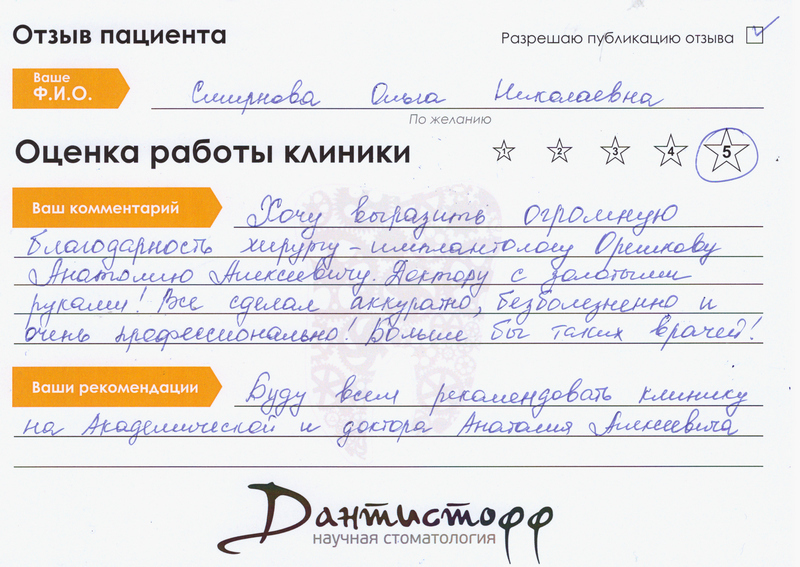 Отзыв пациента
Разрешаю публикацию отзыва
Ваше
Ф.И.О.
Смирнова Ольга Николаевна
По желанию
Оценка работы клиники
1 2 3 4 5
Ваш комментарий
Хочу выразить огромную
благодарность хирургу-имплантологу Орешкову
Анатолию Алексеевичу. Доктору с золотыми
руками! Все сделал аккуратно, безболезненно и
очень профессионально! Больше бы таких врачей!
Ваши рекомендации
Буду всем рекомендовать клинику
на Академической и доктора Анатолия Алексеевича
Дантистофф
научная стоматология